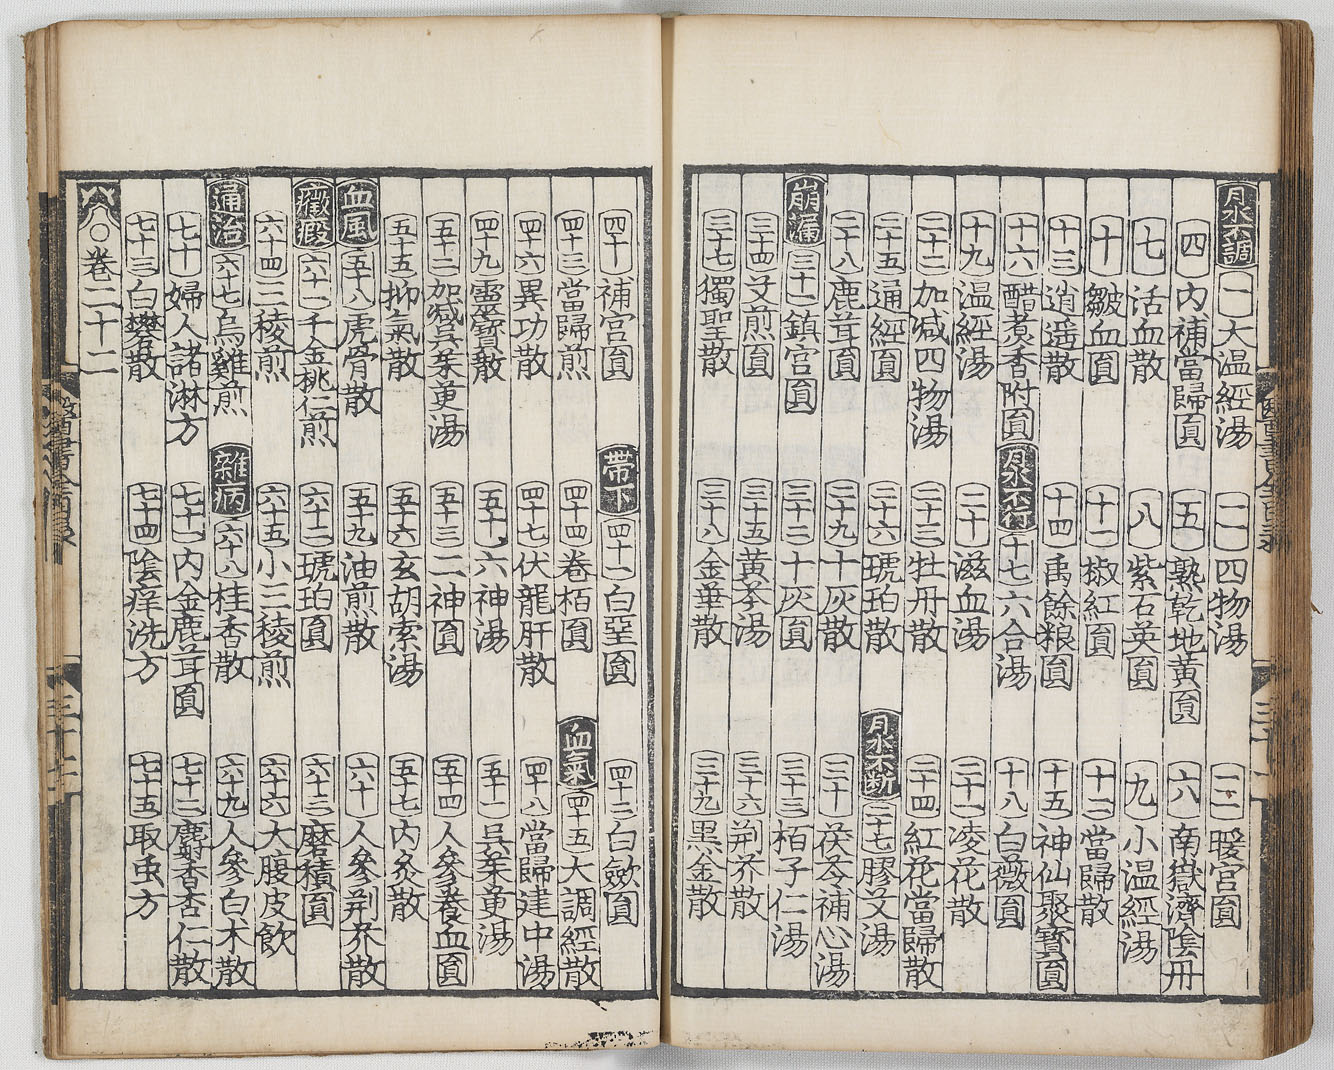 月水不調 一 大温經湯 二 四物湯 三 暖宮圎
四 内補當歸圎 五 熟乾地黃圎 六 南嶽濟陰丹
七 活血散 八 紫石英圎 九 小温經湯
十 皺血圎 十一 椒紅圎 十二 當歸散
十三 逍遥散 十四 禹餘粮圎 十五 神仙聚寳圎
十六 醋煑香附圎 月水不行 十七 六合湯 十八 白薇圎
十九 温經湯 二十 滋血湯 二十一 凌花散
二十二 加减四物湯 二十三 牡丹散 二十四 紅花當歸散
二十五 通經圎 二十六 琥珀散 月水不斷 二十七 膠艾湯
二十八 鹿茸圎 二十九 十灰散 三十 茯苓補心湯
崩漏 三十一 鎮宮圎 三十二 十灰圎 三十三 栢子仁湯
三十四 艾煎圎 三十五 黃芩湯 三十六 荆芥散
三十七 獨聖散 三十八 金華散 三十九 黒金散
四十 補宮圎 帶下 四十一 白堊圎 四十二 白歛圎
四十三 當歸煎 四十四 卷栢圎 血氣 四十五 大調經散
四十六 異功散 四十七 伏龍肝散 四十八 當歸建中湯
四十九 靈寳散 五十 六神湯 五十一 呉茱萸湯
五十二 加减呉茱萸湯 五十三 二神圎 五十四 人參養血圎
五十五 抑氣散 五十六 玄胡索湯 五十七 内灸散
血風 五十八 虎骨散 五十九 油煎散 六十 人參荆芥散
癥瘕 六十一 千金桃仁煎 六十二 琥珀圎 六十三 磨積圎
六十四 三稜煎 六十五 小三稜煎 六十六 大腹皮飲
通治 六十七 烏雞煎 雜病 六十八 桂香散 六十九 人參白术散
七十 婦人諸淋方 七十一 内金鹿茸圎 七十二 麝香杏仁散
七十三 白礬散 七十四 陰痒洗方 七十五 取虫方
卷二十二